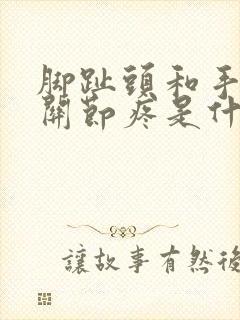 脚趾頭和手
關節疼是什
讓故事有然後